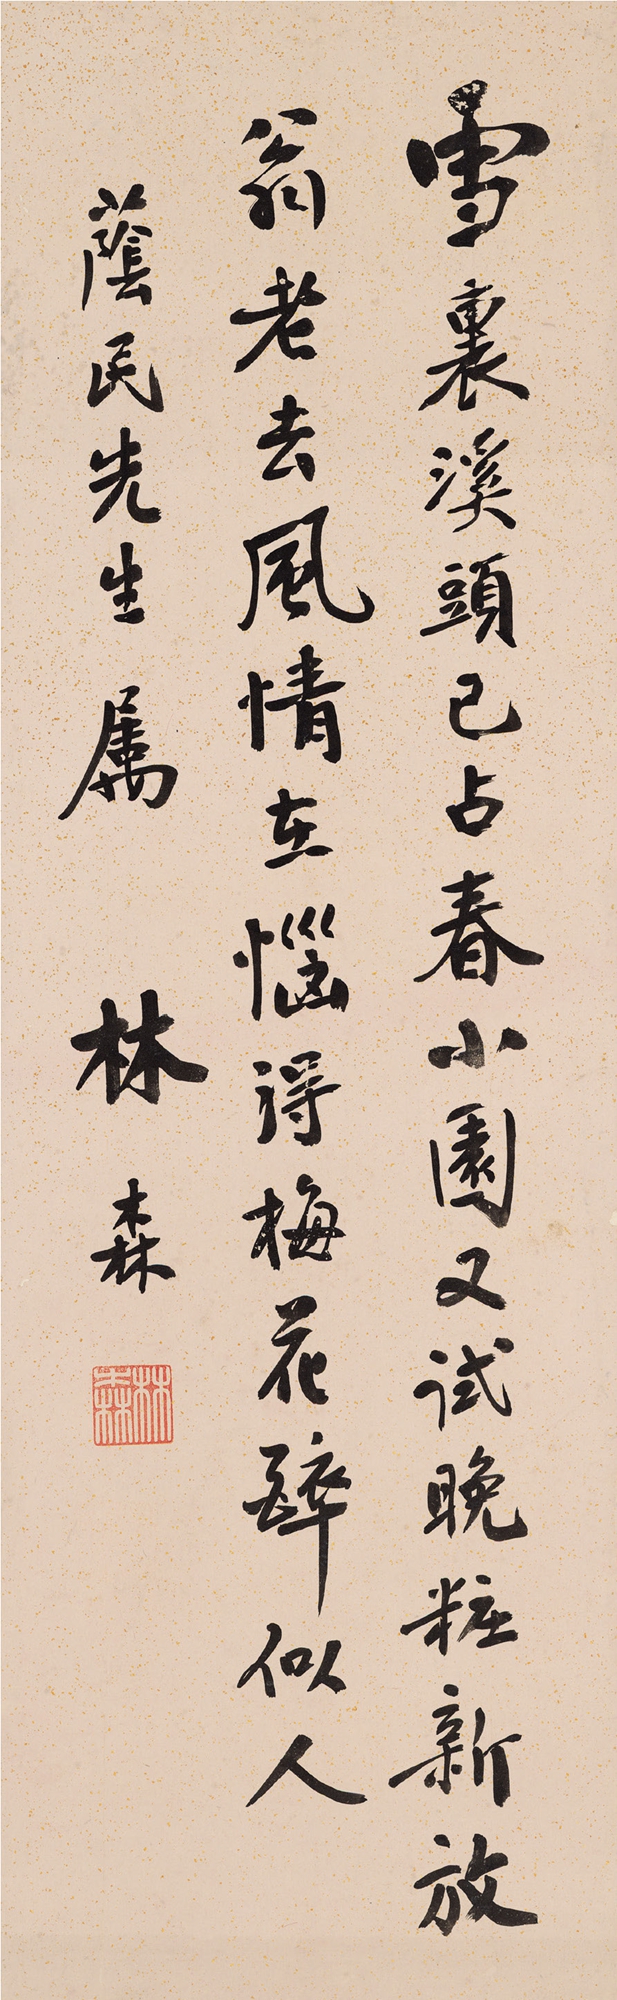 雪裏溪頭已占春小園又試晚粧新放
翁老去風情在惱得梅花醉似人
蔭民先生屬
林森
林森